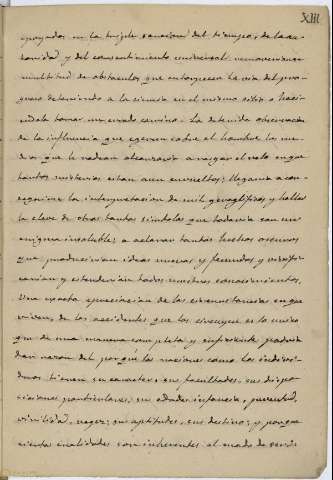 XIII
apoyados en la triple sancion del tiempo, de la 
vanidad y del consentimiento universal: removeriamos
multitud de obstaculos que entorpecen la via del pro-
greso deteniendo á la ciencia en el mismo sitio o haci-
endola tomar un errado camino. La detenida observacion
de la influencia que egercen sobre el hombre los me-
dios que le rodean alcanzaria a rasgar el velo en que
tantos misterios estan aun envueltos; llegaria a con-
seguirse la interpretacion de mil geroglificos y hallar
la clave de otros tantos simbolos que todavia son un
enigma insoluble; a aclarar tantos hechos oscuros
que producirian ideas nuevas y fecundas y
y estenderian todos nuestros conocimientos.
Una exacta apreciacion de las circunstancias en que
vivian, de los accidentes que los es lo unico
que de una manera completa y suficiente podria
dar razon del porqué las naciones como los indivi-
duos tienen su caracter, sus facultades, sus dispo-
siciones particulares; su edades infancia, juventud,
virilidad, vegez; sus aptitudes, sus destinos; y porque
ciertas cualidades son inherentes al modo de ser de